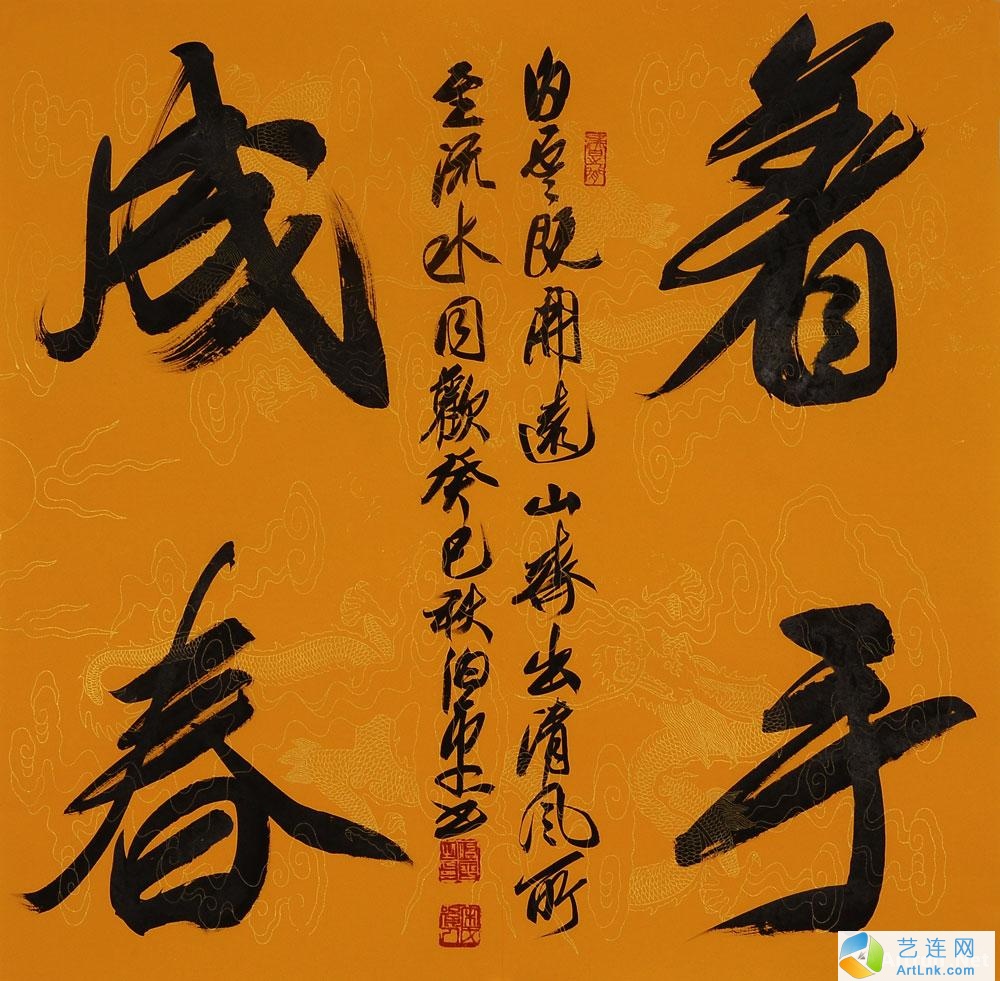 着手
白雲既開遠山齊出清風所
至流水同歡癸巳秋
成春
艺连网
ArtLnk.com